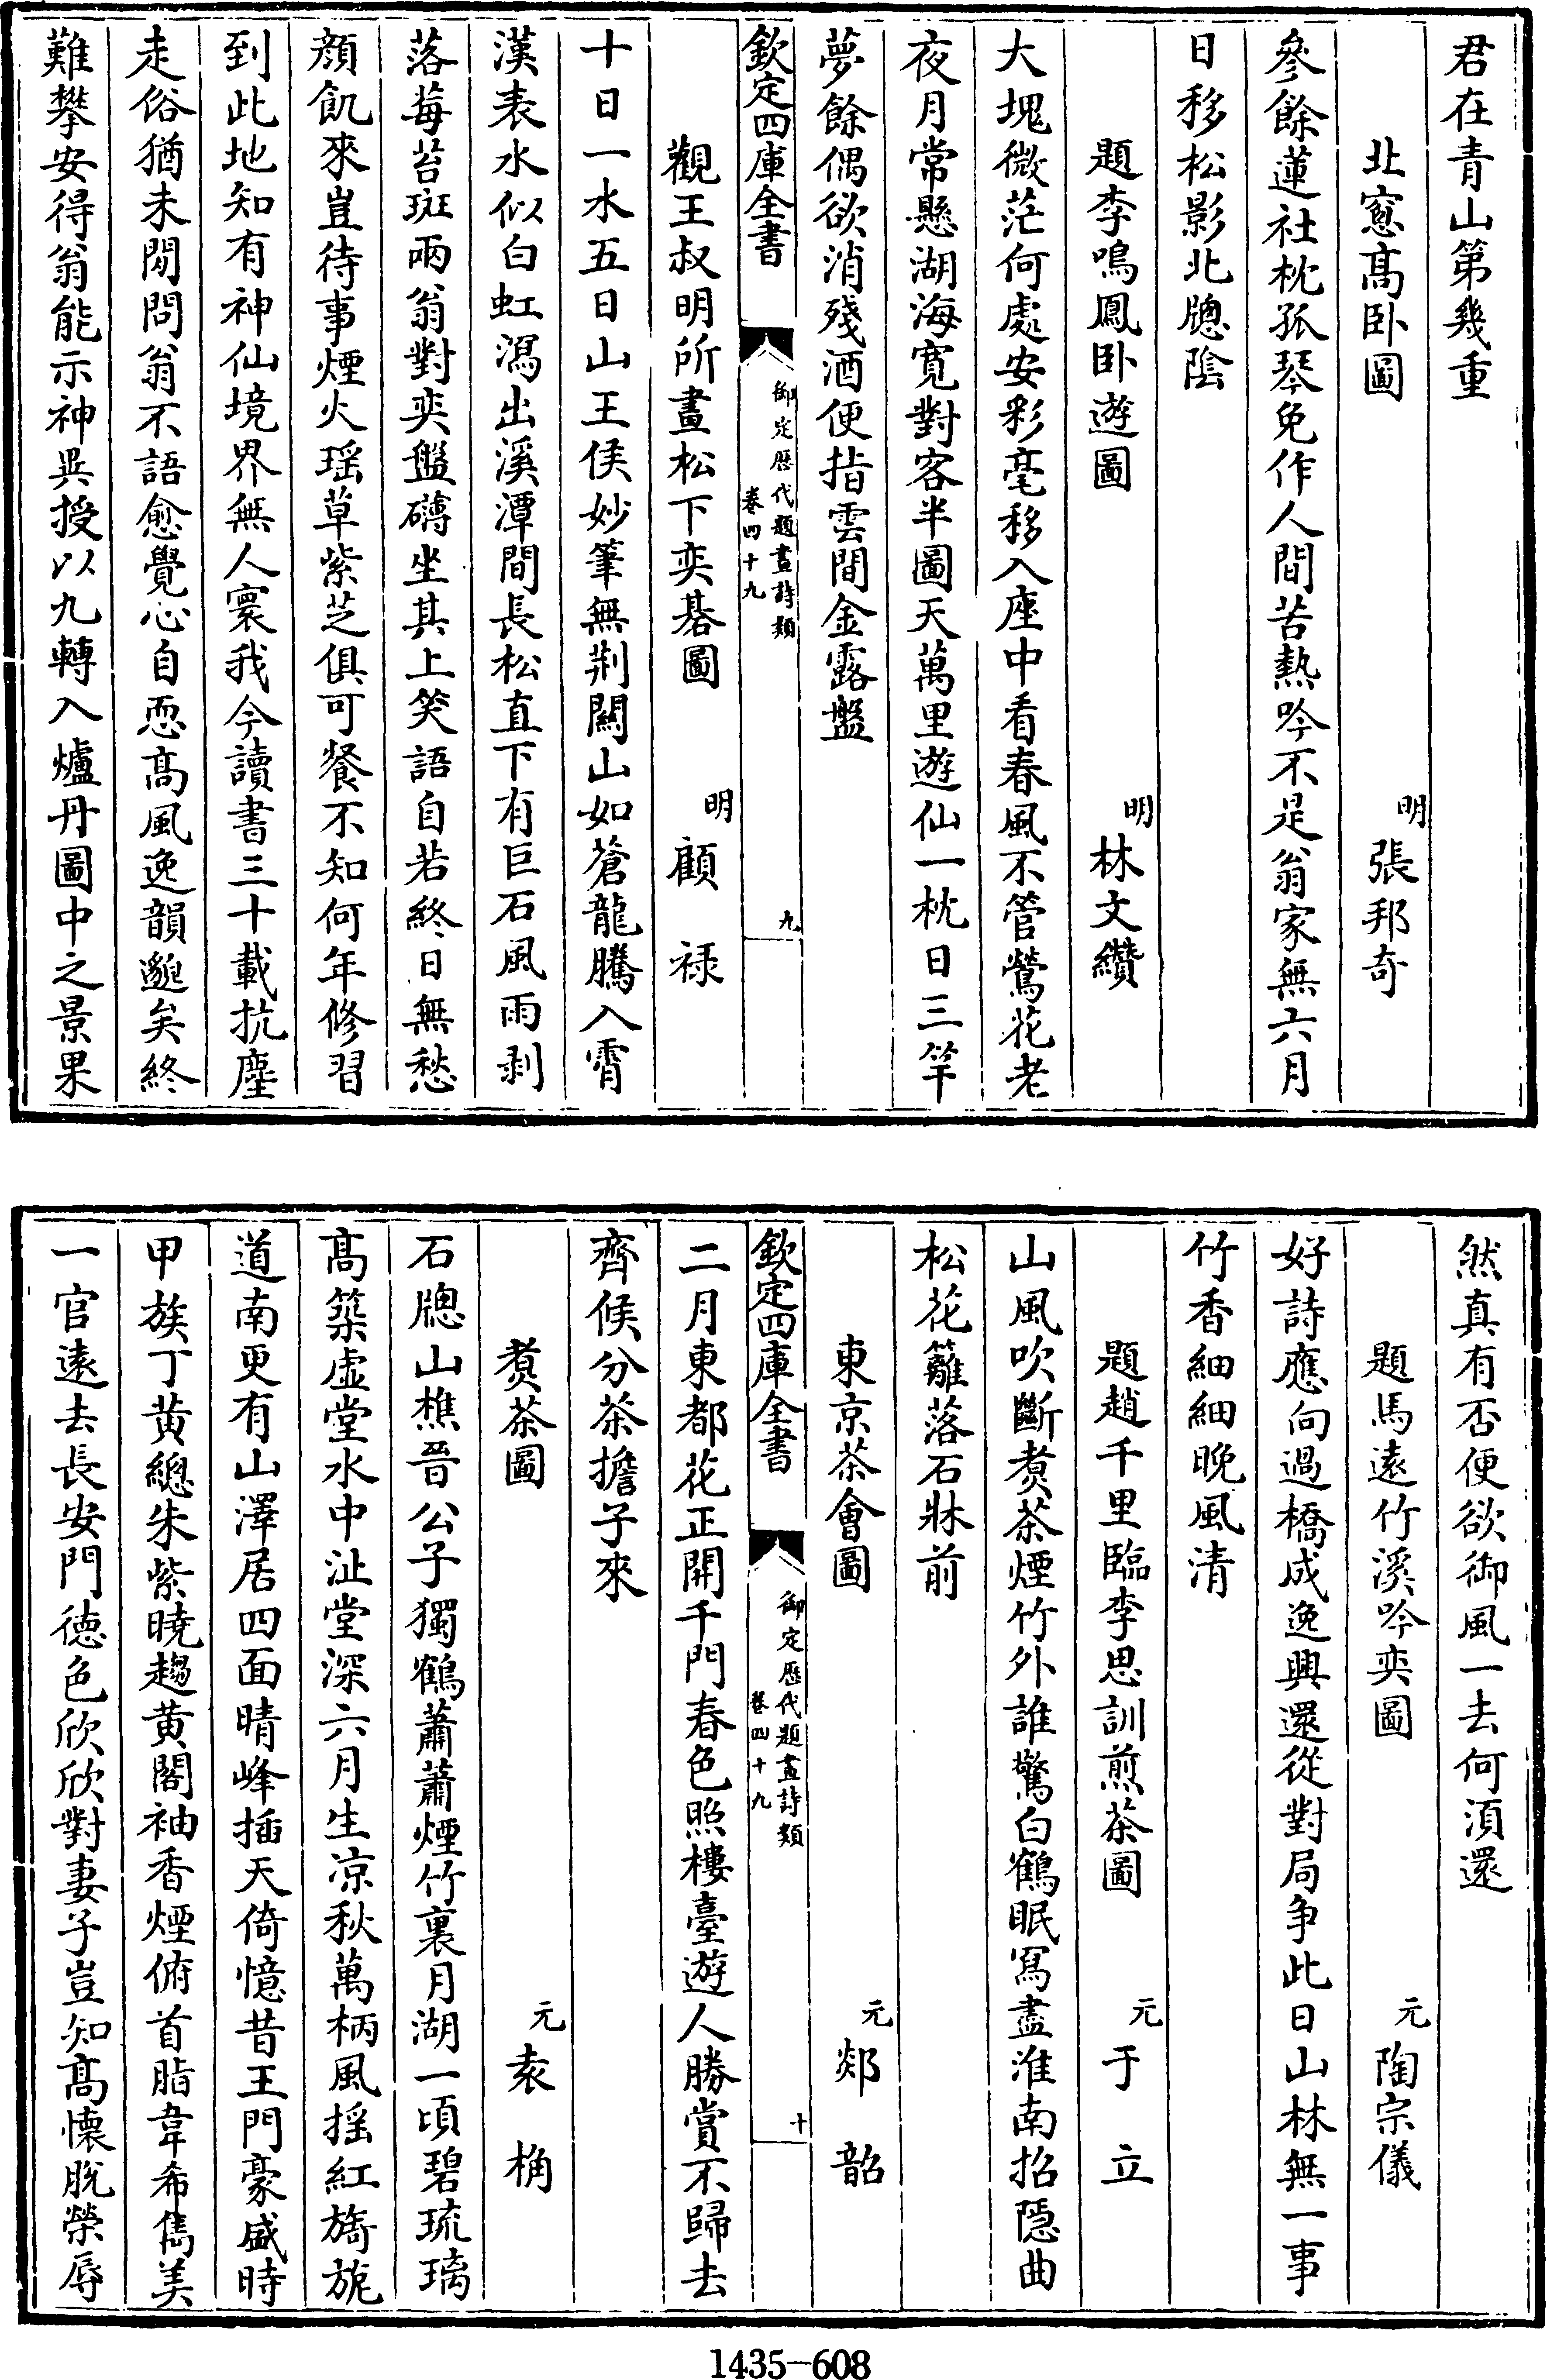 君在青山第幾重
北窻髙卧圖 明 張邦奇
參餘蓮社枕孤琴免作人間苦熱吟不是翁家無六月
日移松影北牕陰
題李鳴鳳卧遊圖 明 林文纘
大塊微茫何處安彩毫移入座中看春風不管鶯花老
夜月常懸湖海寛對客半圖天萬里遊仙一枕日三竿
夢餘偶欲消殘酒便指雲間金露盤
欽定四庫全書 御定歴代題畫詩類 卷四十九 九
觀王叔明所畫松下奕碁圖 明 顧 禄
十日一水五日山王侯妙筆無荆闗山如蒼龍騰入霄
漢表水似白虹瀉出溪潭間長松直下有巨石風雨剥
落莓苔斑兩翁對奕盤礴坐其上笑語自若終日無愁
顔飢來豈待事煙火瑶草紫芝俱可餐不知何年修習
到此地知有神仙境界無人寰我今讀書三十載抗塵
走俗猶未閒問翁不語愈覺心自恧髙風逸韻邈矣終
難攀安得翁能示神異授以九轉入爐丹圖中之景果
然真有否便欲御風一去何湏還
題馬逺竹溪吟奕圖 元 陶宗儀
好詩應向過橋成逸興還從對局争此日山林無一事
竹香細細晚風清
題趙千里臨李思訓煎茶圖 元 于 立
山風吹斷煑茶煙竹外誰驚白鶴眠冩盡淮南招隠曲
松花籬落石牀前
東京茶會圖 元 郯 韶
欽定四庫全書 御定歴代題畫詩類 卷四十九 十
二月東都花正開千門春色照樓臺遊人勝賞不歸去
齊候分茶擔子來
煑茶圖 元 袁 桷
石牕山樵晉公子獨鶴蕭蕭煙竹裏月湖一頃碧琉璃
髙築虚堂水中沚堂深六月生凉秋萬柄風揺紅旖旎
道南更有山澤居四面晴峰插天倚憶昔王門豪盛時
甲族丁黄總朱紫曉趨黄閣袖香煙俯首脂韋希雋美
一官逺去長安門徳色欣欣對妻子豈知髙懐脫榮辱
1435-608